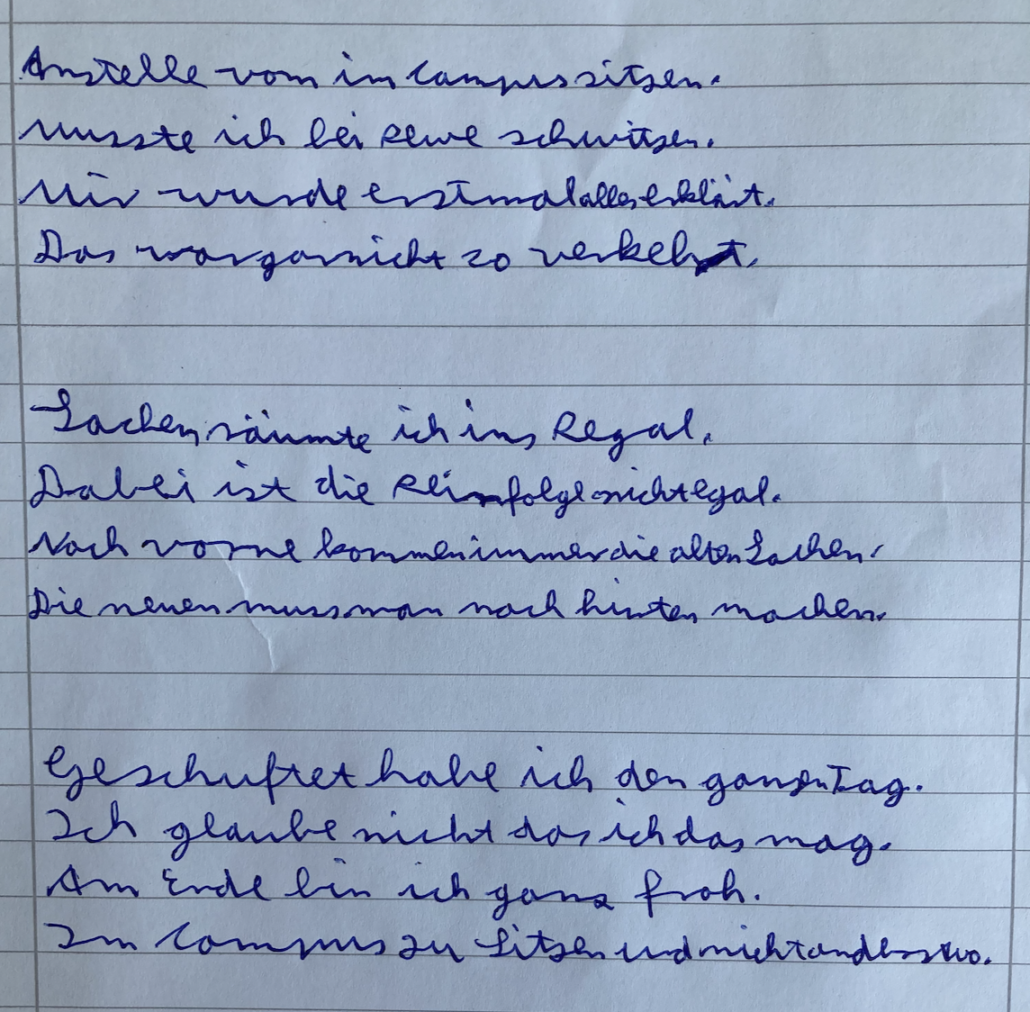 Anstelle vom im Campus sitzen.
Musste ich bei Rewe schwitzen.
Mir wurde erstmal alles erklärt.
Das war gar nicht so verkehrt.
Sachen räumte ich ins Regal.
Dabei ist die Reinfolge nicht egal.
Nach vorne kommen immer die alten Sachen.
Die neuen muss man nach hinten machen.
Geschuftet habe ich den ganzen Tag.
Ich glaube nicht das ich das mag.
Am Ende bin ich ganz froh.
Im Campus zu Sitzen und nicht anderstwo.